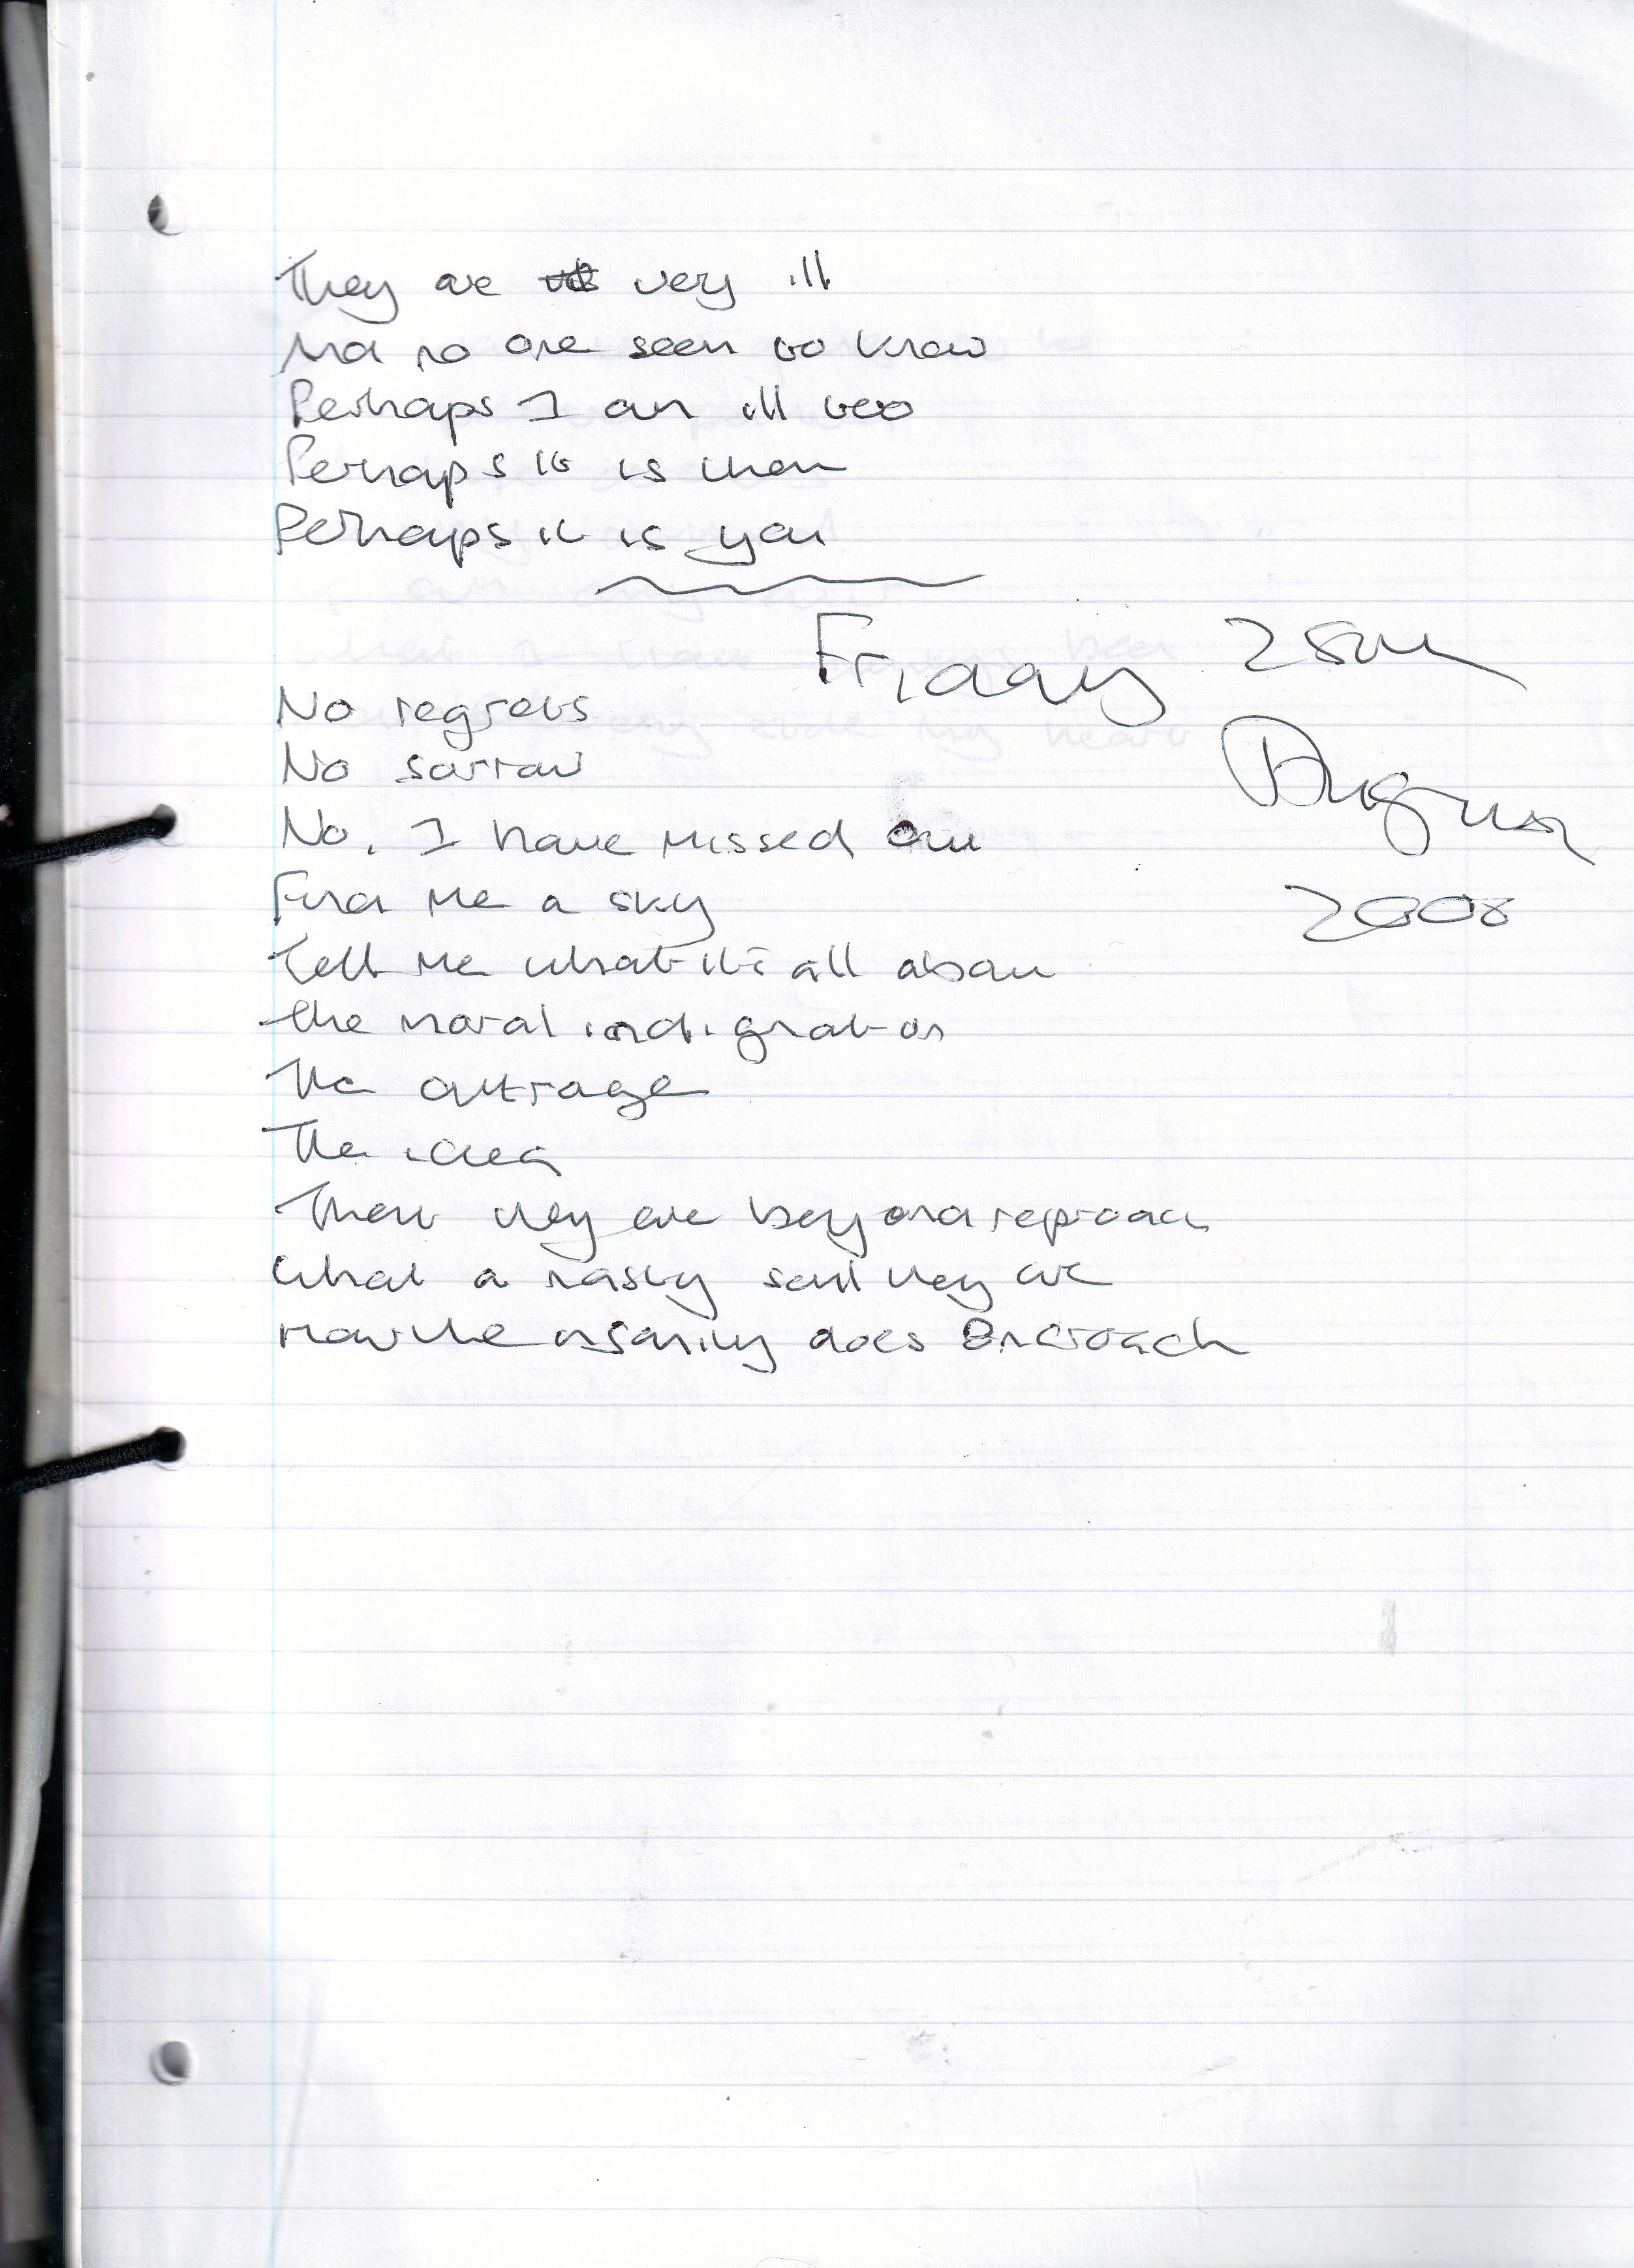 They are very ill
And no one seem to know
Perhaps I am ill too
Perhaps it is them
Perhaps it is you
Friday 25th
August
2008
No regrets
No sorrow
No, I have missed out
Find me a sky
Tell me what it's all about
The moral indignation
The outrage
The idea
That they are beyond reproach
What a nasty soul they are
How the insanity does encroach